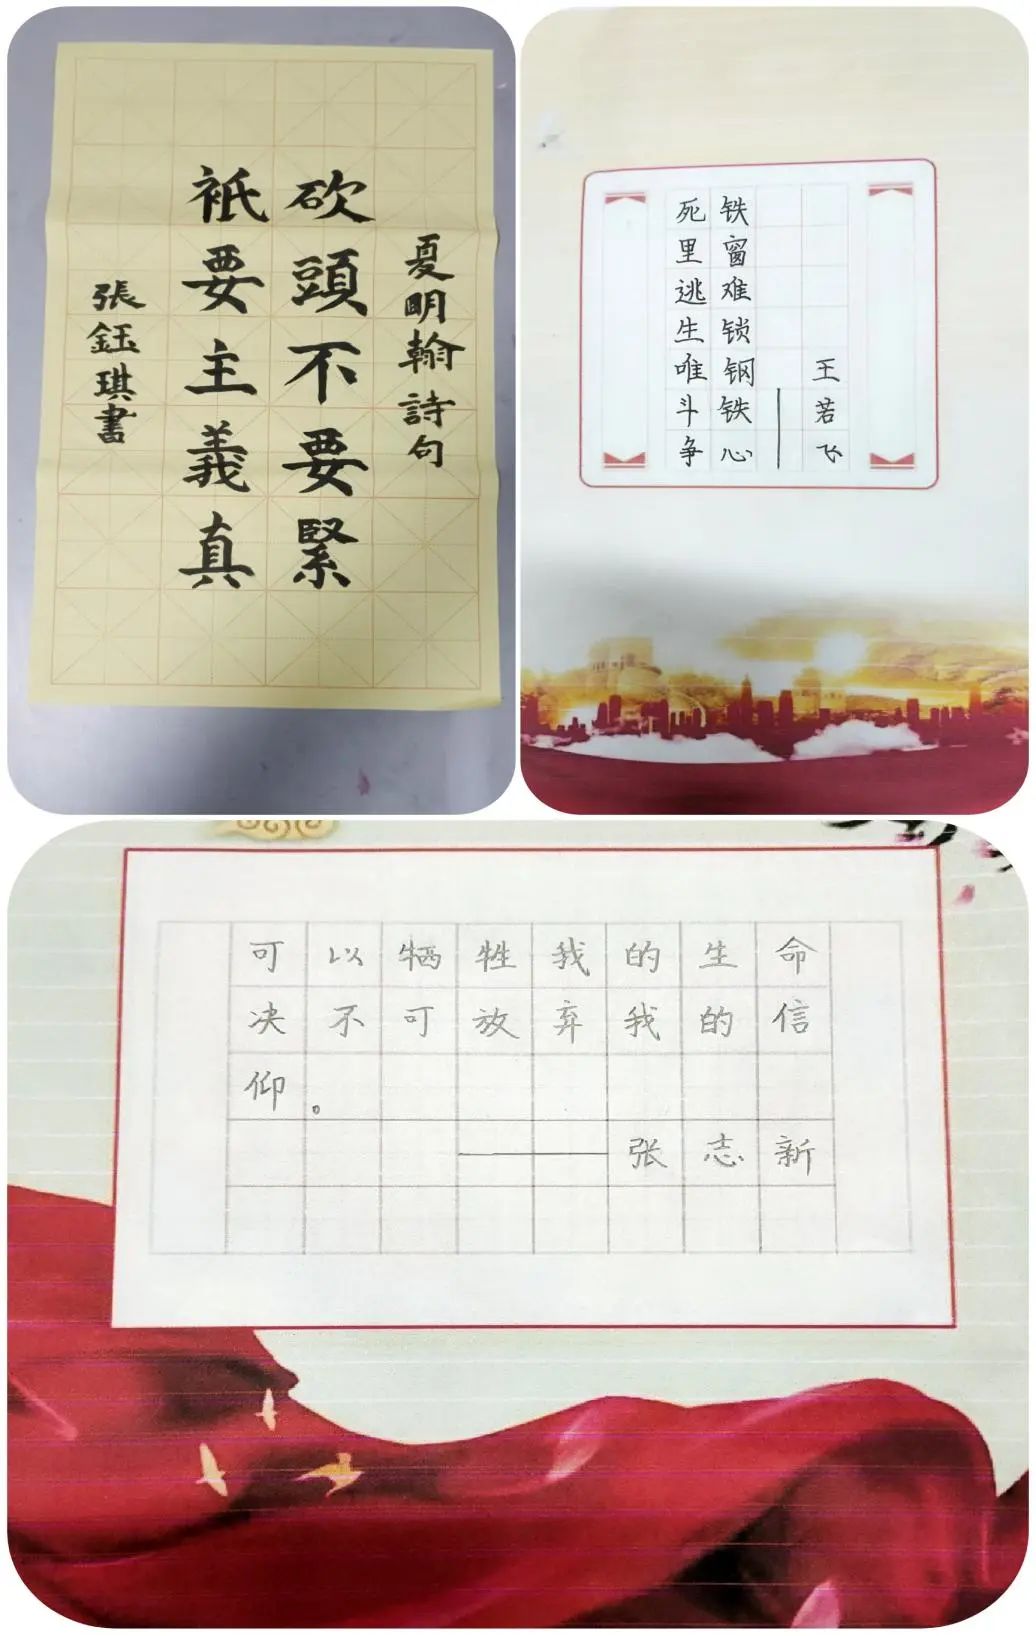 夏明翰詩句
砍頭不要緊
衹要主義真
張鈺琪書
铁窗难锁钢铁心
死里逃生唯斗争
——王若飞
可以牺牲我的生命
决不可放弃我的信
仰。
——张志新